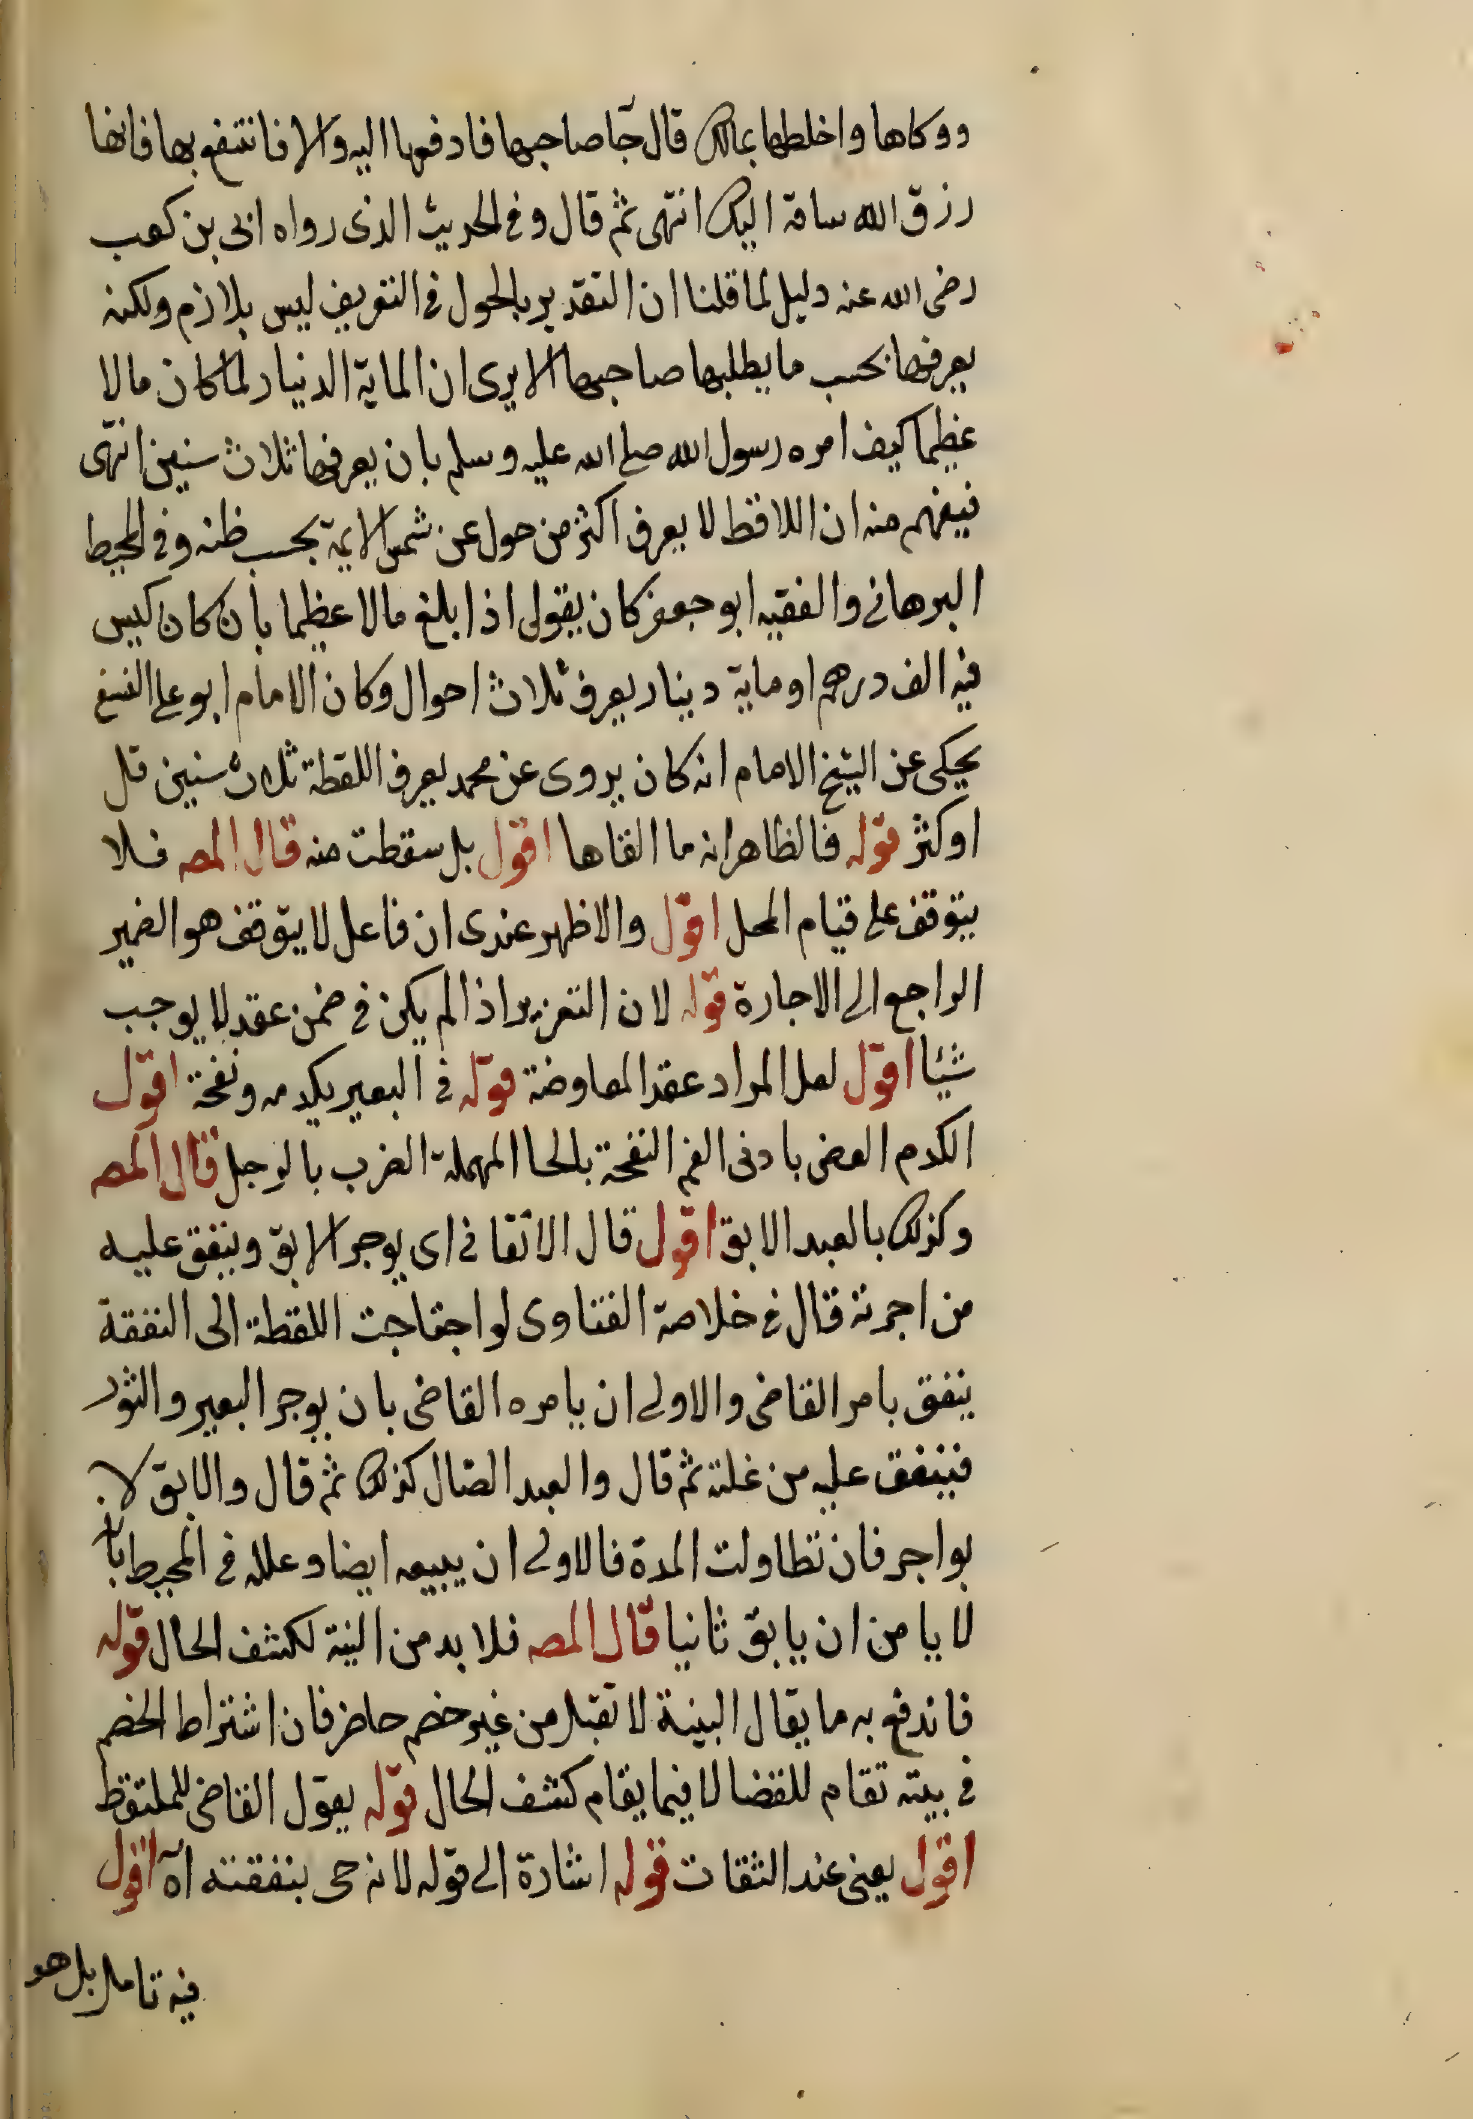 ووكاها واخلطها بمالك قال جآ صاحبها فادفعها اليه والا فانتفع بها فانها
رزق الله ساقه اليك انتهى ثم قال وفى الحديث الذى رواه ابى بن كعب
رضى الله عنه دليل لما قلنا ان التقدير بالحول فى التعريف ليس بلازم ولكنه
يعرفها بحسب ما يطلبها صاحبها الا يرى ان الماية الدنيار لما كان مالا
عظيما كيف امره رسول الله صلى الله عليه وسلم بان يعرفها ثلاث سنين انتهى
فيفهم منه ان اللاقط لا يعرف اكثر من حول عن شمس الايمة بحسب ظنه وفى المحيط
البرهانى والفقيه ابو جعفر كان يقول اذا بلغ مالا عظيما بأن كان كيس
فيه الف درهم او ماية دينار يعرف ثلاث احوال وكان الامام ابو على النسفى
يحكى عن الشيخ الامام انه كان يروى عن محمد يعرف اللقطة ثلاث سنين قل
او كثر قوله فالظاهر انه ما القاها اقول بل سقطت منه قال المصه فلا
يتوقف على قيام المحل اقول والاظهر عندى ان فاعل لا يتوقف هو الضمير
الراجع الى الاجارة قوله لان التغرير اذا لم يكن فى ضمن عقد لا يوجب
شيئا اقول لعل المراد عقد المعاوضة قوله فى البعير بكدمه ونفحة اقول
الكدم العض بادنى الفم النفحة بالحا المهملة الضرب بالرجل قال المصه
وكذلك بالعبد الابق اقول قال الاتقانى اى يوجر الابق وينفق عليه
من اجرته قال فى خلاصة الفتاوى لو احتاجت اللقطة الى النفقة
ينفق بامر القاضى والاولى ان يامره القاضى بان يوجر البعير والثور
فينفق عليه من غلته ثم قال والعبد الضال كذلك ثم قال والابق لا
يواجر فان تطاولت المدة فالاولى ان يبيعه ايضا وعلله فى المحيط بانه
لا يامن ان يابق ثانيا قال المصه فلا بد من البينة لكشف الحال قوله
فاندفع به ما يقال البينة لا تقبل من غير خصم حاضر فان اشتراط الخصم
فى بينه تقام للقضا لا فيما يقام كشف الحال قوله يقول القاضى للملتقط
اقول يعنى عند الثقات قوله اشارة الى قوله لانه حى بنفقته اه اقول
فيه تامل بل هو